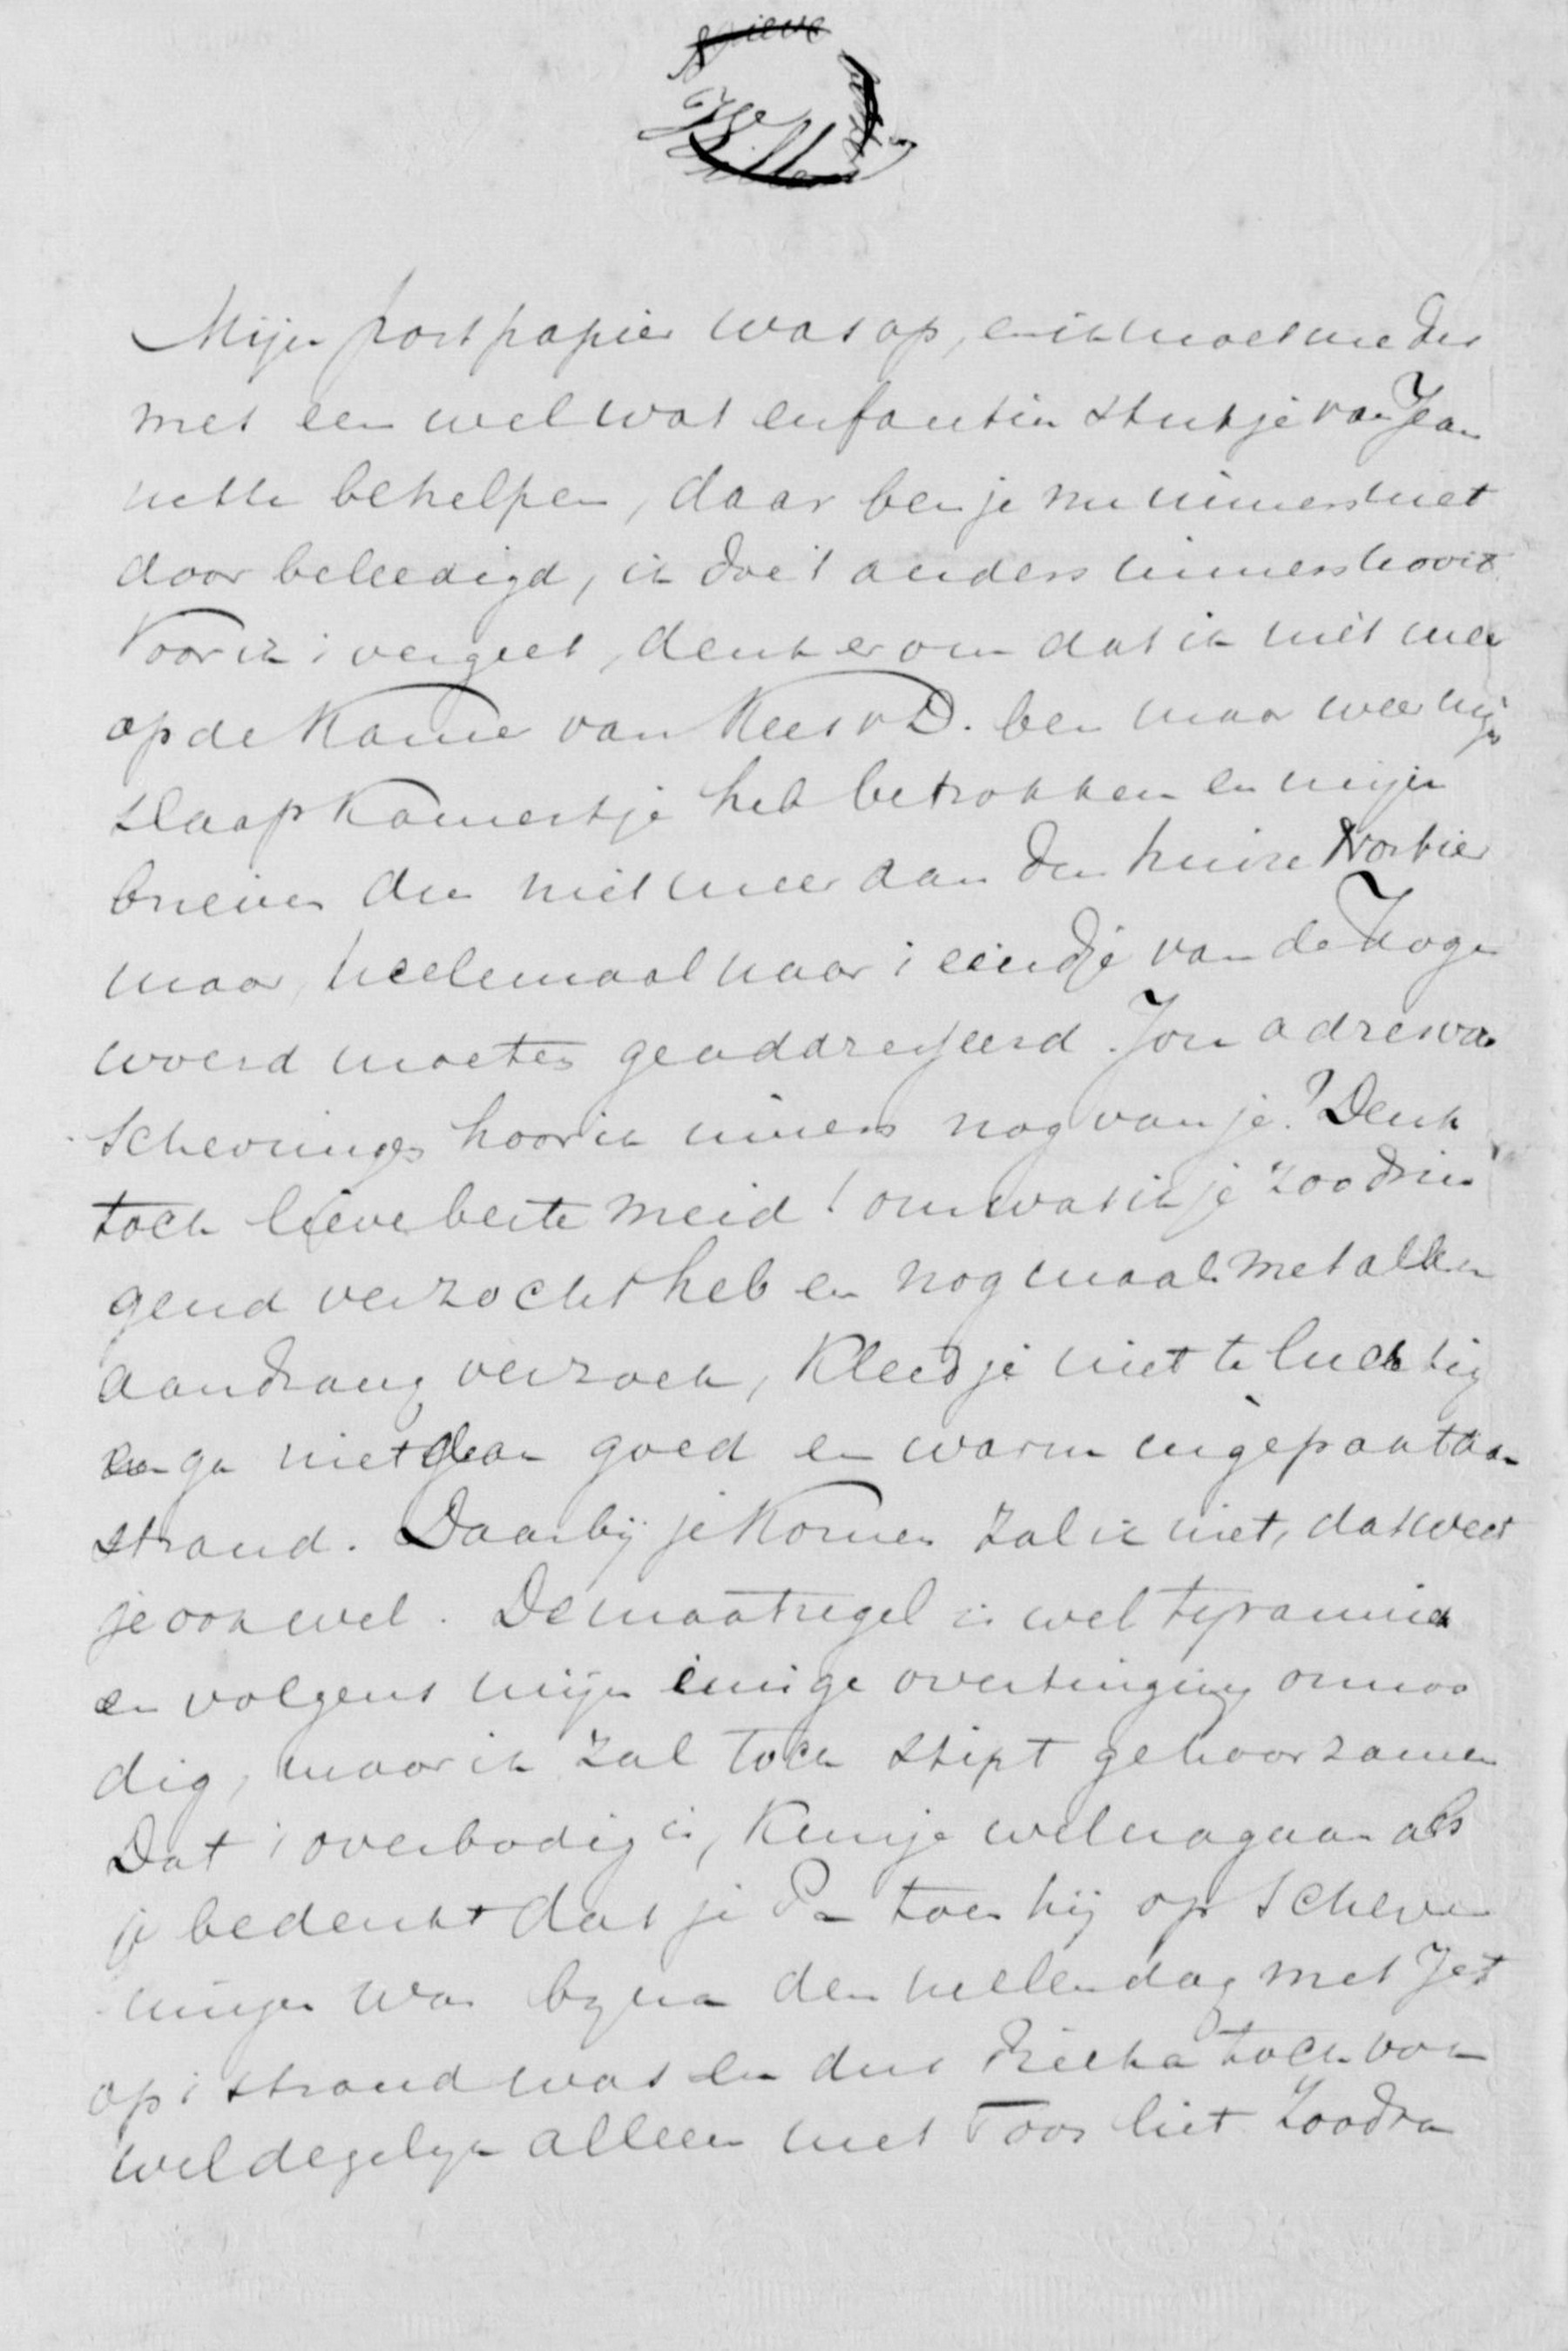 Mijn postpapier was op, en ik moet me dus
met een wel wat enfantin stukje van Jean
nette behelpen, daar ben je nu immers niet
door beleedigd, ik doe 't anders immers nooit.
Voor ik 't vergeet, denk er om dat ik niet meer
op de Kamer van Kees v D. ben maar weer mijn
slaapkamertje heb betrokken en mijn
brieven dus niet meer aan den huize
maar heelemaal naar 't eindje van de Hooge
woerd moeten geaddresseerd. Jou adres van
Scheveningen hoor ik immers nog van je? Denk
toch lieve beste meid! om wat ik je zoo drin
gend verzocht heb en nogmaals met allen
aandrang verzoek, Kleed je niet te luchtig
en ga niet dan goed en warm ingepakt aan
strand. Daar bij je Komen zal ik niet, dat weet
je ook wel. De maatregel is wel tyranniek
en volgens mijn innige overtuiging onnoo
dig, maar ik zal toch stipt gehoorzamen
Dat 't overbodig is, Kun je wel nagaan als
je bedenkt dat je Pa toen hij op Scheve
ningen was byna den heelen dag met Jet
op 't strand was en dus toch ook
wel degelijk alleen met Toos liet Zoodra